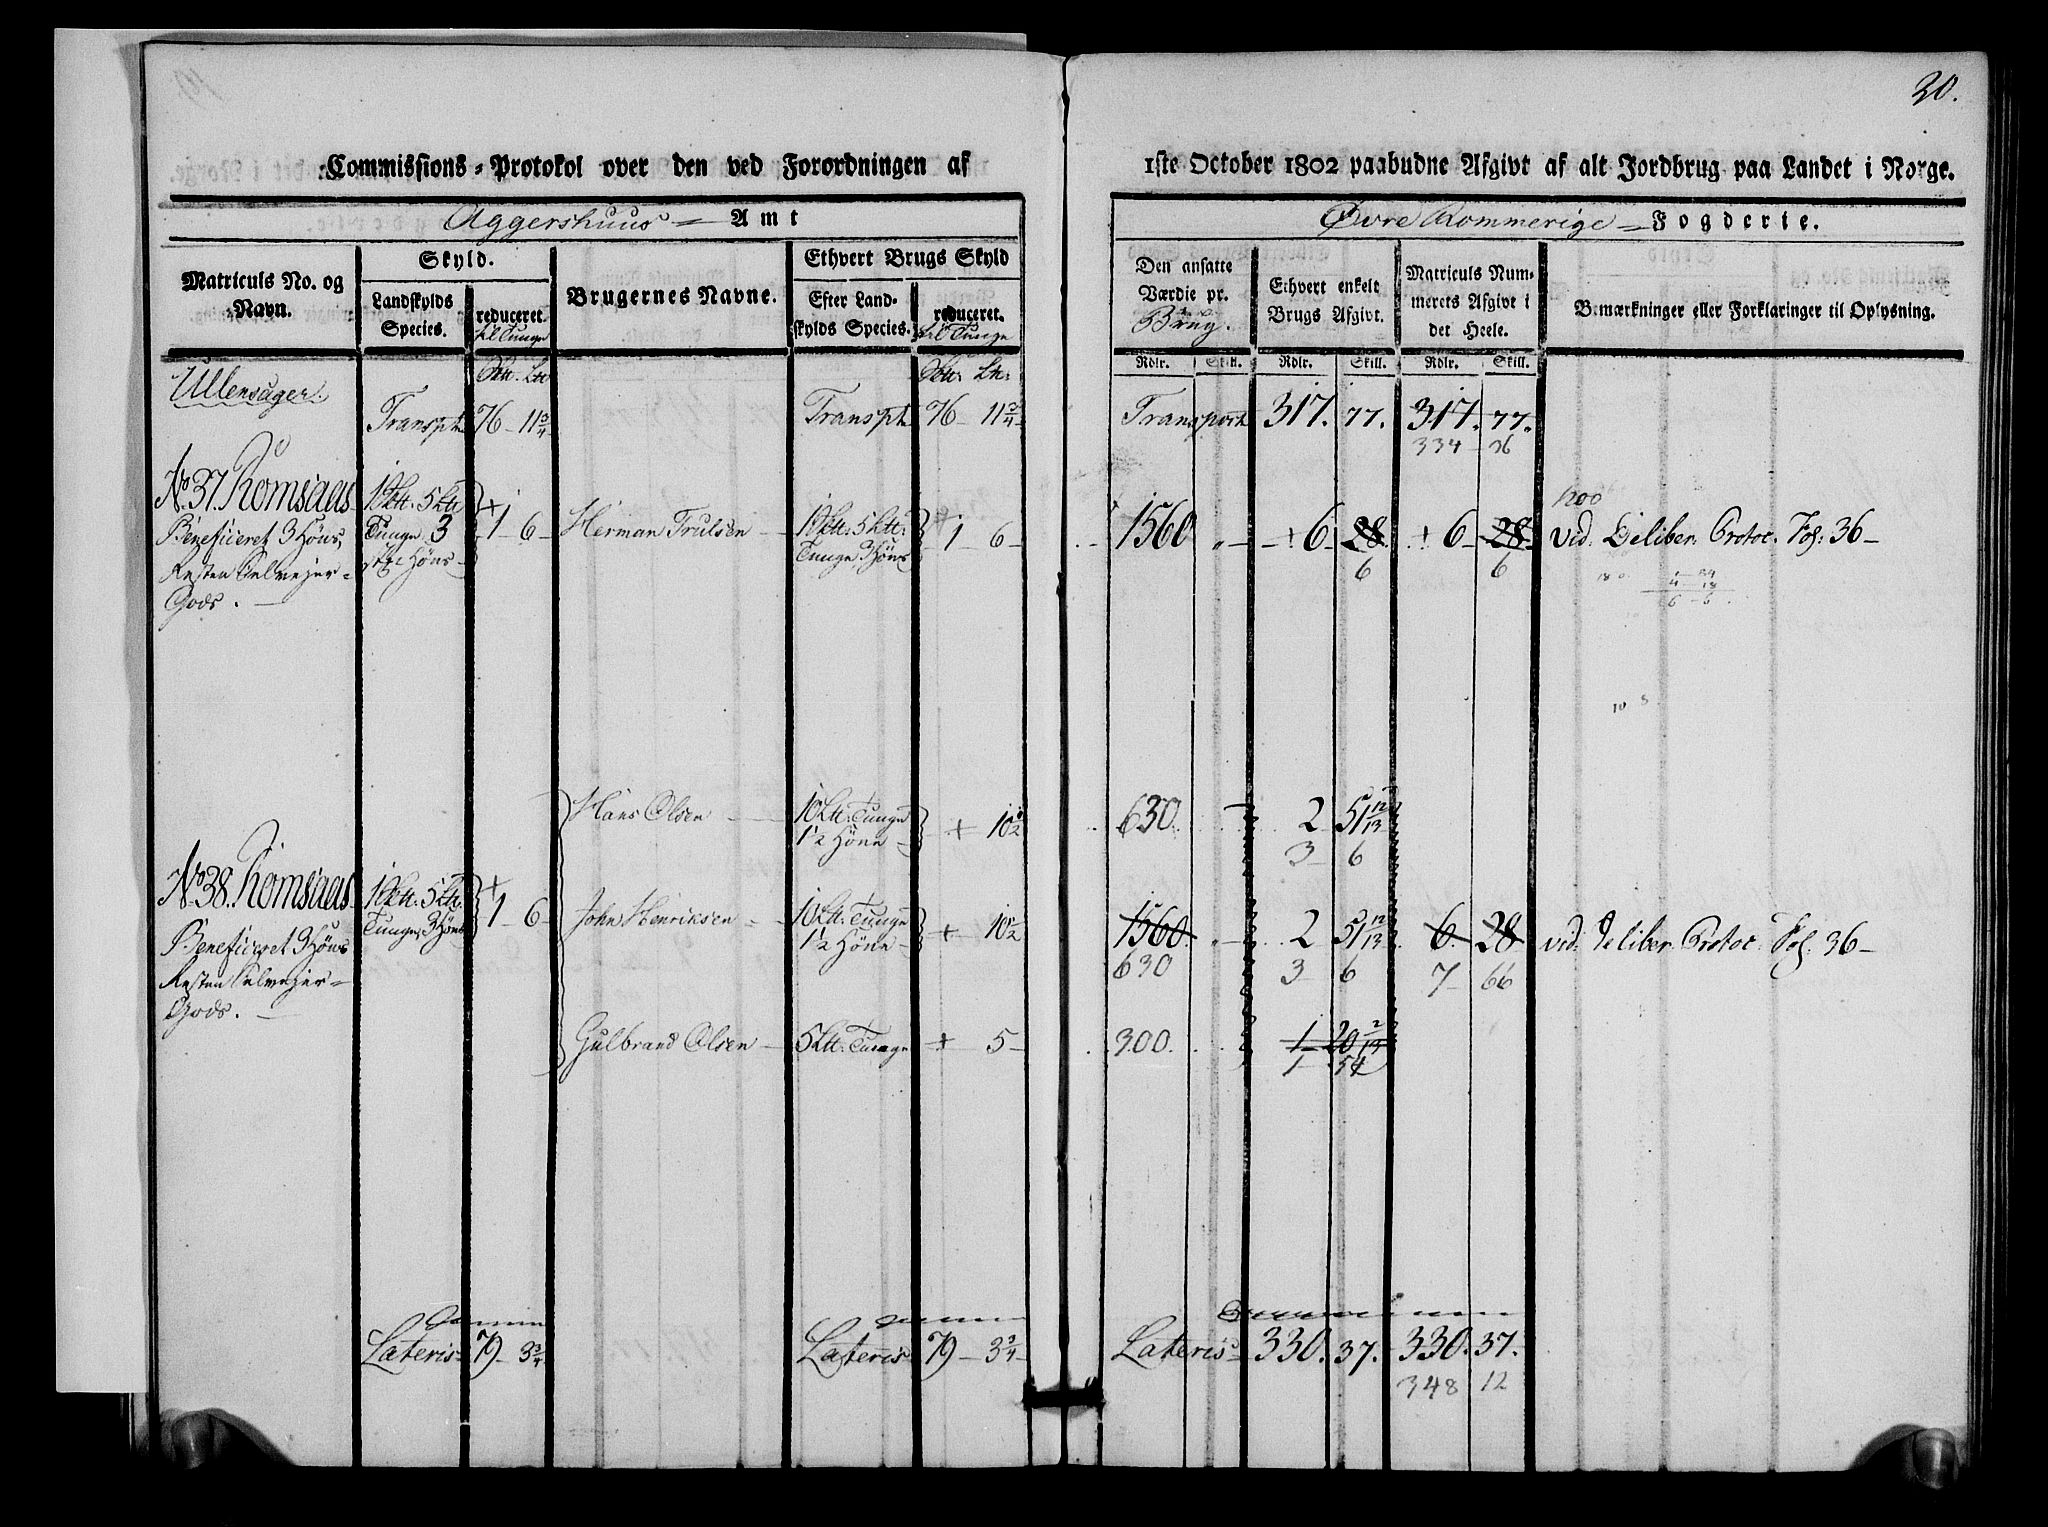 20.
Commissions-Protokol over den ved Forordningen af
1ste October 1802 paabudne Afgivt af alt Jordbrug paa Landet i Norge.
Aggershuus Amt
Øvre Rommerige Fogderie.
Matriculs No. og Navn.
Skyld.
Landskylds Species.
reduceret. til Tunge
Brugernes Navne.
Ethvert Brugs Skyld
Efter Landskylds Species.
reduceret. til Tunge
Den ansatte Værdie pr. Brug.
Ethvert enkelt Brugs Afgivt.
Matriculs Nummerets Afgivt i det Heele.
Bemærkninger eller Forklaringer til Oplysning.
Rdlr. Skill. Rdlr. Skill. Rdlr. Skill.
Ullensager.
Transpt 76 - 11 3/4
Transpt 76 - 11 3/4
Transport 317. 77. 317. 77.
334 36
No 37. Romsaas
Beneficeret 3 Høns,
Resten Selveyer-
Gods.
5 Ltt.
Tunge 3
Høns
+ 1 - 6
Herman Trulsen
5 Ltt.
Tunge, 3 Høns
1 6
1560 " + 6 28. + 6 28
6 6
1200
vid. Deliber. Protoc. Fol: 36
6 - 6
Hans Olsen
10 Ltt. Tunge
1 1/2 Høne
+ 10 1/2
630. 2 51 12/13
3 6
No 38. Romsaas
Beneficeret 3 Høns
Resten Selveyer-
Gods.
5 Ltt.
Tunge, 3 Høns
+ 1 - 6
John Henriksen
10 Ltt. Tunge
1 1/2 Høne
+ 10 1/2
1560. " 2 51 12/13 6. 28
630 3 6 7 66
vid. Deliber. Protoc. Fol: 36
Gulbrand Olsen
5 Ltt. Tunge + 5
300. 1 20 2/13
1 54
Lateris 79 - 3 3/4
Lateris 79 - 3 3/4
Lateris 330. 37. 330. 37.
348 12